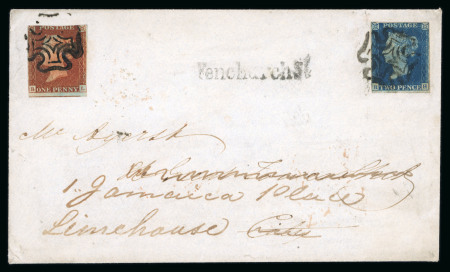 POSTAGE
ONE PENNY
Fenchurch St
POSTAGE
TWO PENCE
Mr Ayerst
1 Jamaica Place
Limehouse